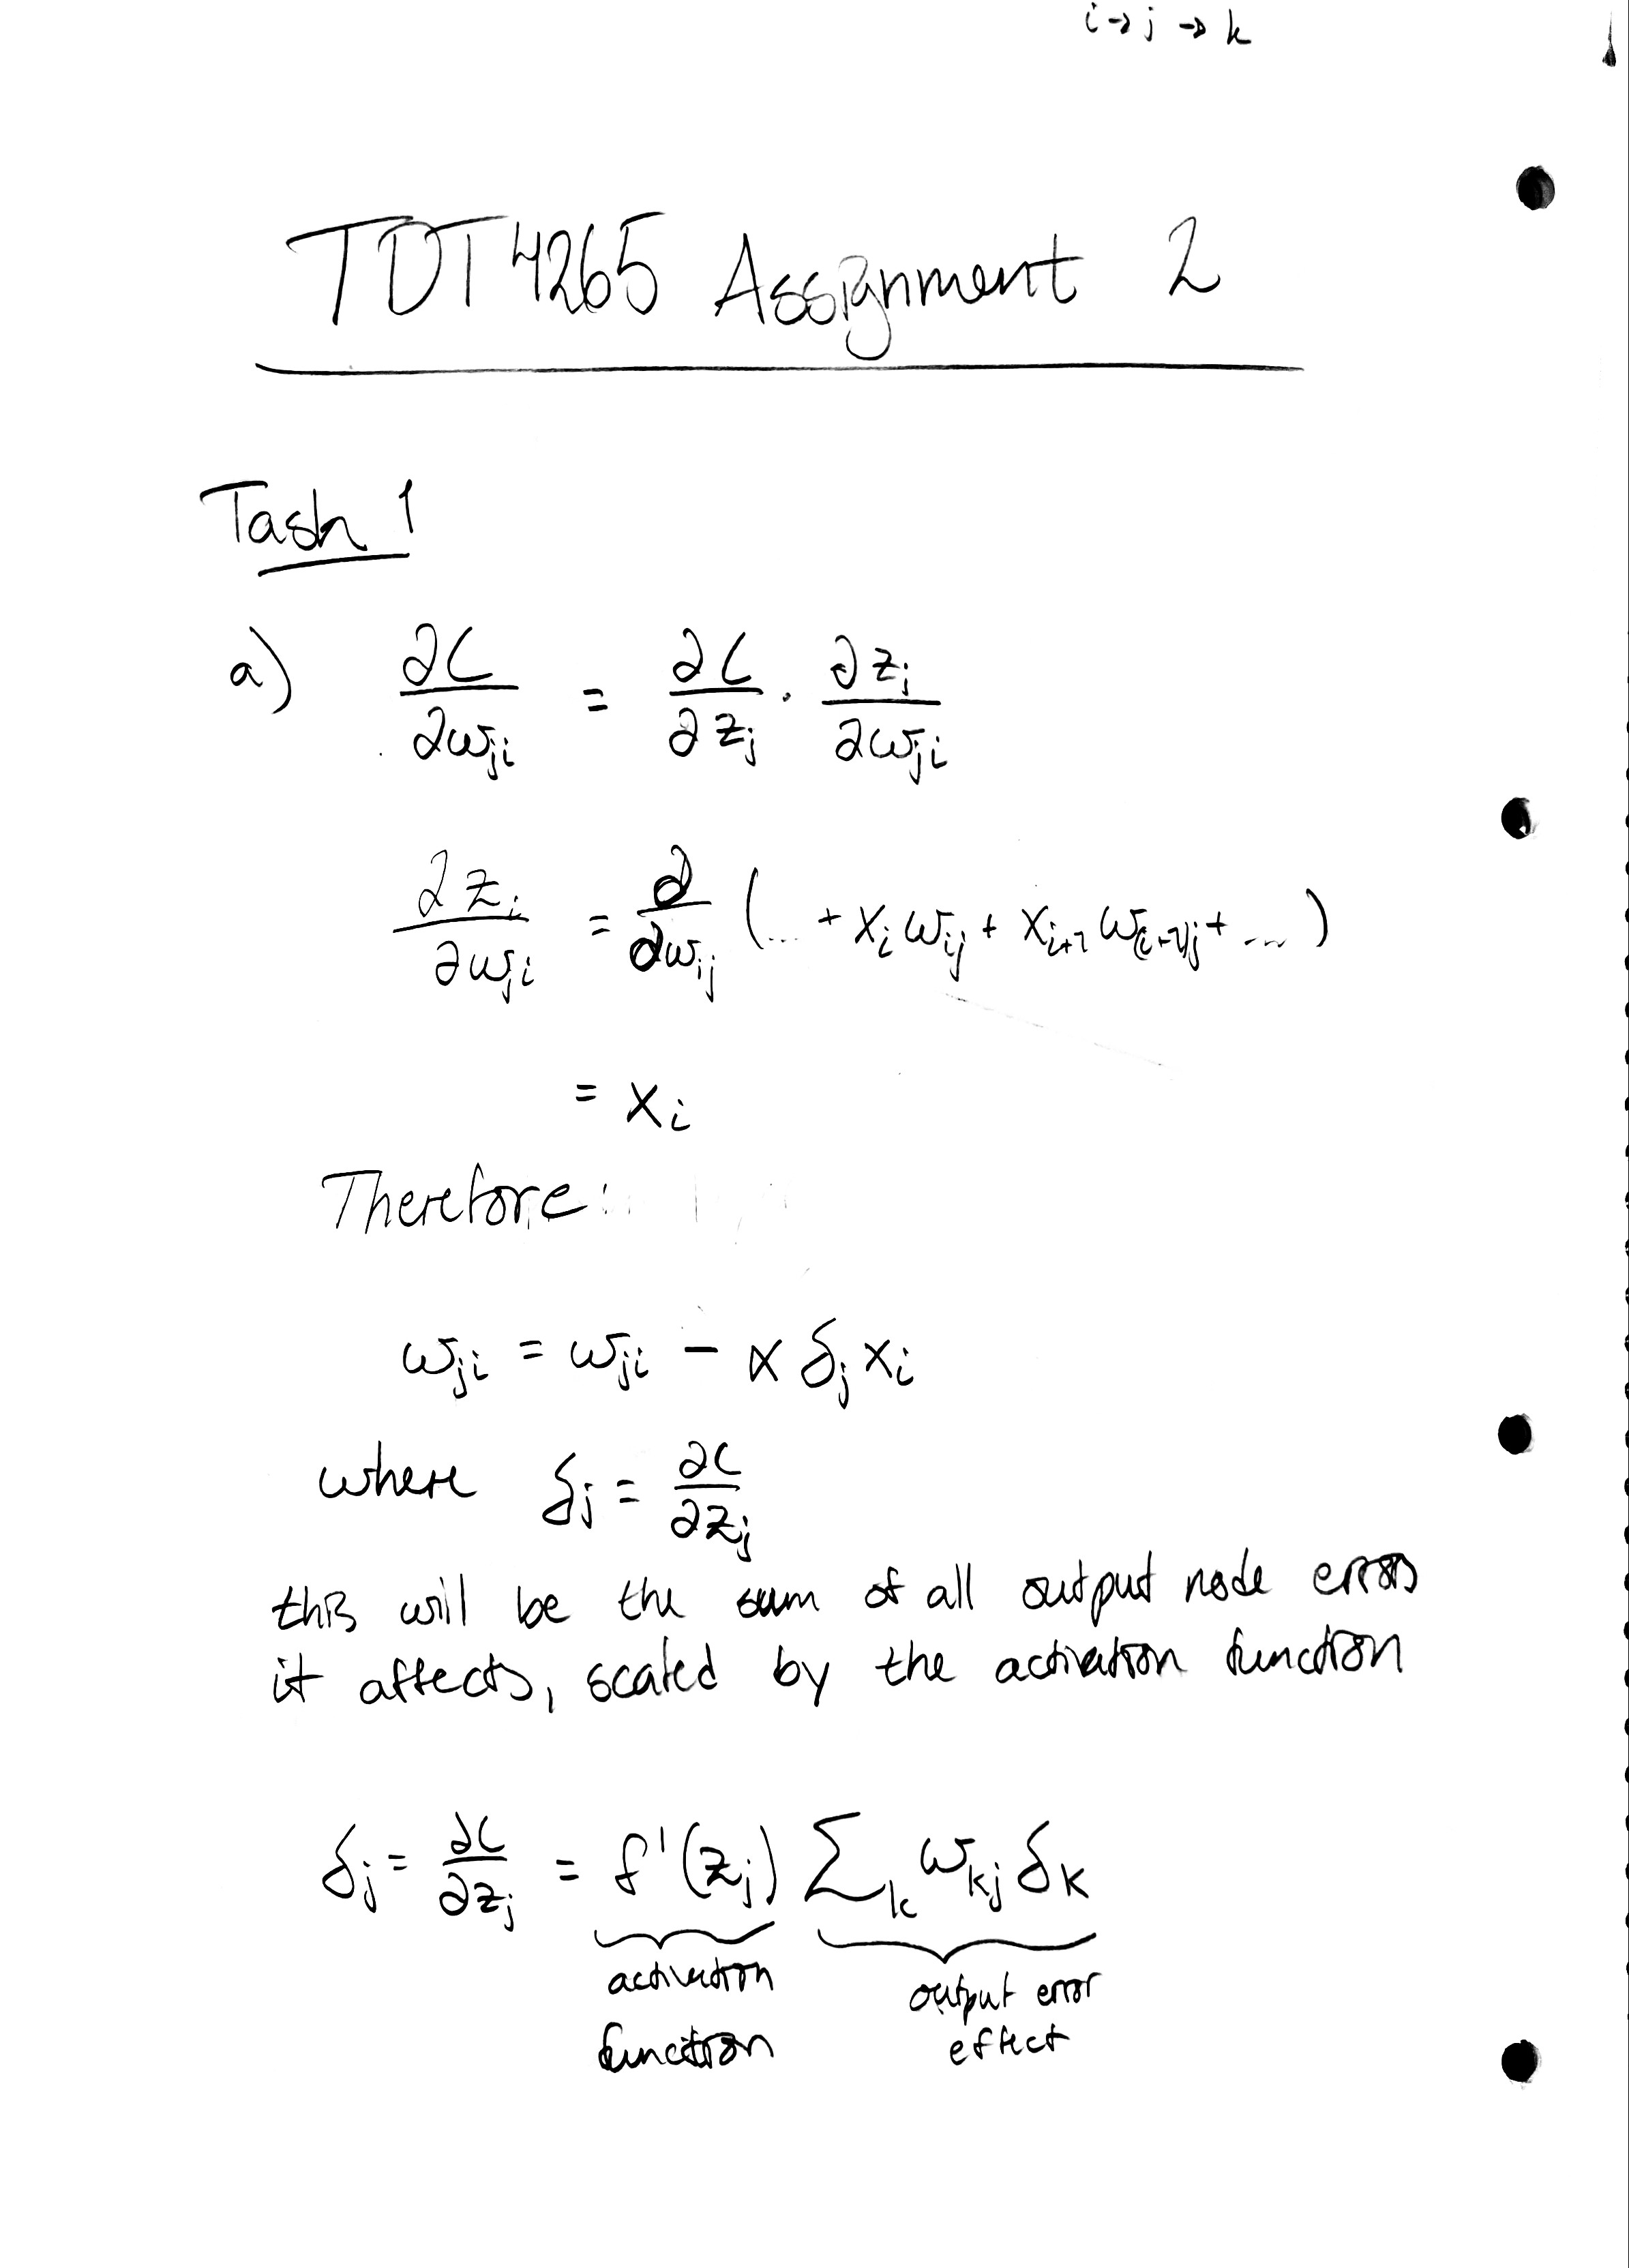 i → j → k
TDT4265 Assignment 2
Task 1
a) ∂C/∂w_ji = ∂C/∂z_j · ∂z_j/∂w_ji
∂z_i/∂w_ji = ∂/∂w_ij (... + x_i w_ij + x_{i+1} w_{(i+1)j} + ...)
= x_i
Therefore:
w_ji = w_ji - α δ_j x_i
where δ_j = ∂C/∂z_j
this will be the sum of all output node errors
it affects, scaled by the activation function
δ_j = ∂C/∂z_j = f'(z_j) Σ_k w_kj δ_k
activation output error
function effect